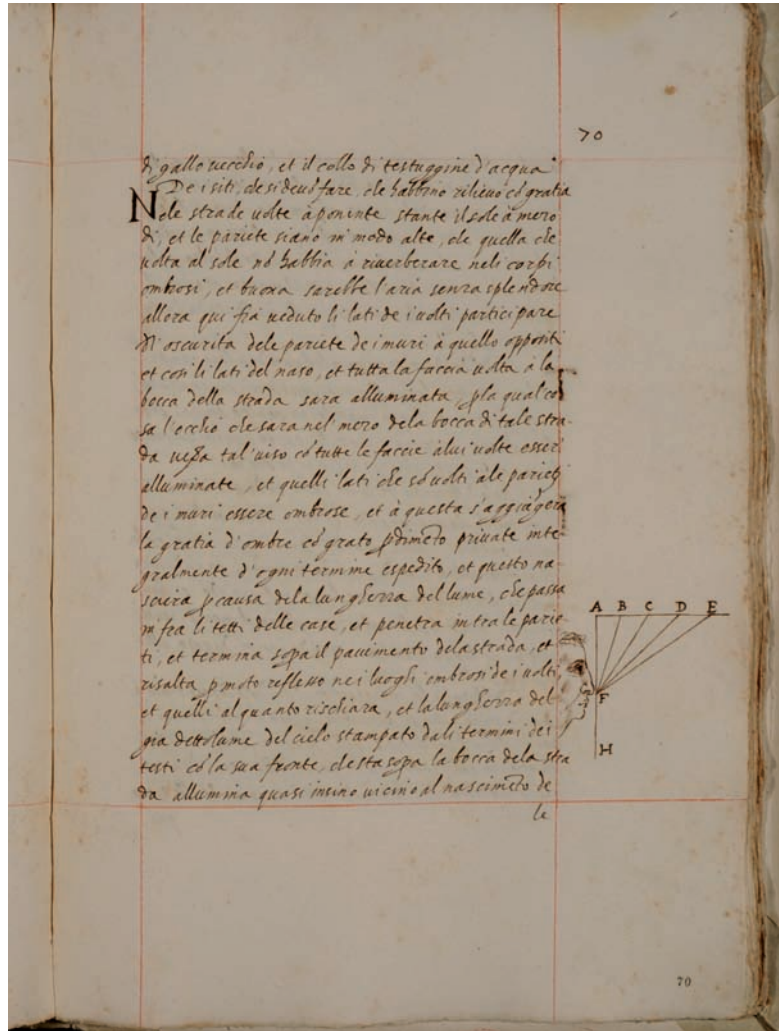 70
di gallo uecchio, et il collo di testuggine d'acqua
De i siti, che si deuō fare, che habbino rilieuo cō gratia
Nele strade uolte à ponente stante il sole à mezo
di, et le pariete siano in modo alte, che quella che
uolta al sole nō habbia à riuerberare neli corpi
ombrosi, et buona sarebbe l'aria senza splendore
allora qui fia ueduto li lati de i uolti participare
di oscurita dele pariete de i muri à quello oppositi
et cosi li lati del naso, et tutta la faccia uolta à la
bocca della strada sara alluminata, p la qual co
sa l'occhio che sara nel mezo dela bocca di tale stra-
da uedra tal uiso cō tutte le faccie à lui uolte esser
alluminate, et quelli lati che sō uolti ale parieti
de i muri essere ombrose, et à questa s'aggiūgera
la gratia d'ombre cō grato pdimēto priuate inte-
gralmente d'ogni termine espedito, et questo na-
scera p causa dela lunghezza del lume, che passa
in fra li tetti delle case, et penetra in tra le parie-
ti, et termina sopa il pauimento dela strada, et
risalta p moto reflesso ne i luoghi ombrosi de i uolti,
et quelli alquanto rischiara, et la lunghezza del
gia detto lume del cielo stampato dali termini de i
testi cō la sua fronte, che sta sopa la bocca dela stra
da allumina quasi insino uicino al nascimēto de
le
A B C D E
F
H
70